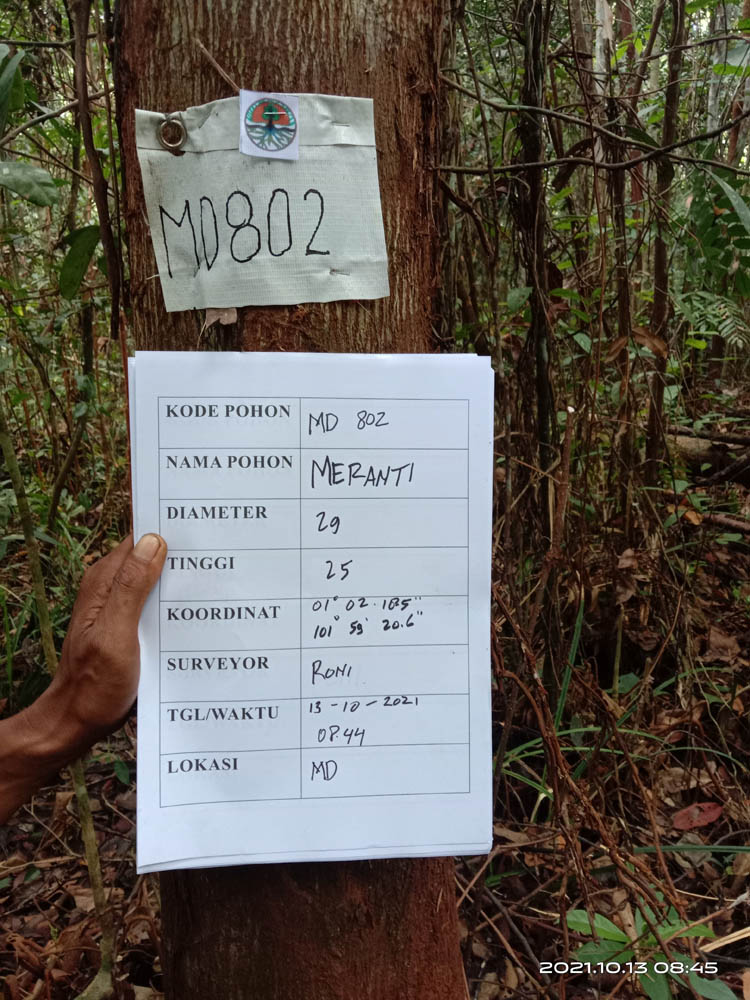 MD802
KODE POHON MD 802
NAMA POHON MERANTI
DIAMETER 29
TINGGI 25
KOORDINAT 01° 02.
101° 59' 20.6"
SURVEYOR RONI
TGL/WAKTU 13-10-2021
08.44
LOKASI MD
2021.10.13 08:45